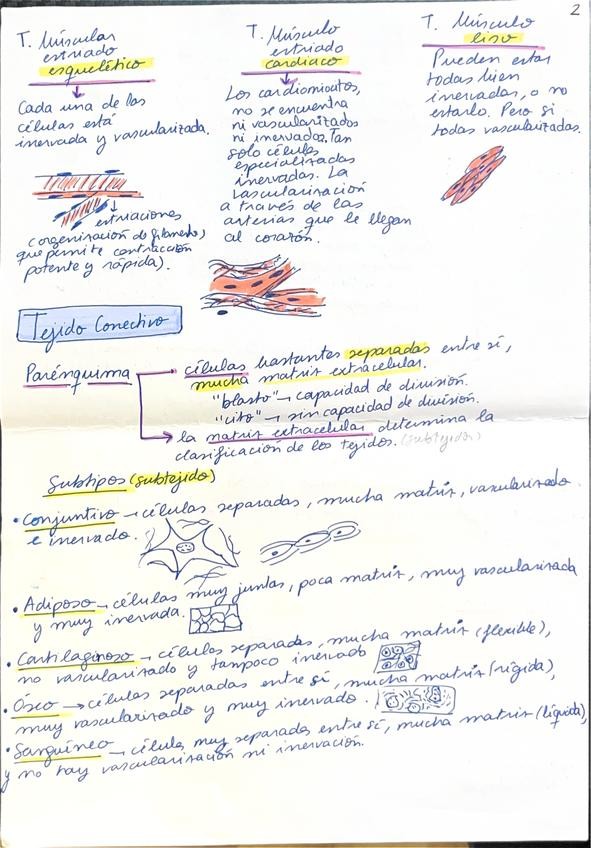 2
T. Múscular
estriado
esquelético
Cada una de las
células está
inervada y vascularizada.
estriaciones
(organización de filamentos)
que permite contracción
potente y rápida).
T. Músculo
estriado
cardiaco
Los cardiomiocitos,
no se encuentra
ni vascularizados
ni inervados. Tan
solo células
especializadas
inervadas. La
vascularización
a través de las
arterias que le llegan
al corazón.
T. Músculo
liso
Pueden estar
todas bien
inervadas, o no
estarlo. Pero si
todas vascularizadas.
Tejido Conectivo
Parénquima
células bastantes separadas entre sí,
mucha matriz extracelular.
"blasto" → capacidad de división.
"cito" → sin capacidad de división.
la matriz extracelular determina la
clasificación de los tejidos. (subtejidos)
Subtipos (subtejido)
• Conjuntivo → células separadas, mucha matriz, vascularizado
e inervado.
• Adiposo → células muy juntas, poca matriz, muy vascularizada
y muy inervada.
• Cartilaginoso → células separadas, mucha matriz (flexible),
no vascularizado y tampoco inervado
• Óseo → células separadas entre sí, mucha matriz (rígida),
muy vascularizado y muy inervado.
• Sanguíneo → célula muy separadas entre sí, mucha matriz (líquida),
y no hay vascularización ni inervación.